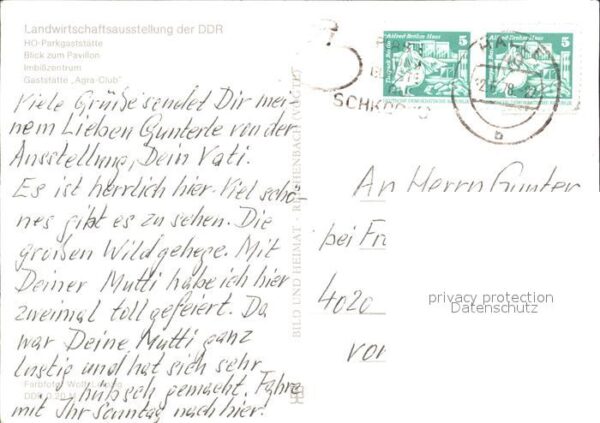 Landwirtschaftsausstellung der DDR
HO-Parkgaststätte
Blick zum Pavillon
Imbißzentrum
Gaststätte „Agra-Club"
Viele Grüße sendet Dir mei-
nem Lieben Gunterle von der
Ausstellung, Dein Vati.
Es ist herrlich hier. Viel schö-
nes gibt es zu sehen. Die
großen Wildgehege. Mit
Deiner Mutti habe ich hier
zweimal toll gefeiert. Da
war Deine Mutti ganz
lustig und hat sich sehr
hübsch gemacht. Fahre
mit Ihr Sonntag nach hier.
Farbfoto:
DDR 0,20 M
BILD UND HEIMAT REICHENBACH (VOGTL)
Alfred Brehm Haus 5
Tierpark Berlin
Alfred Brehm Haus 5
Tierpark Berlin
HALLE
78
b
SCHKO
An Herrn Gunter
bei Fr
4020
vor
privacy protection
Datenschutz